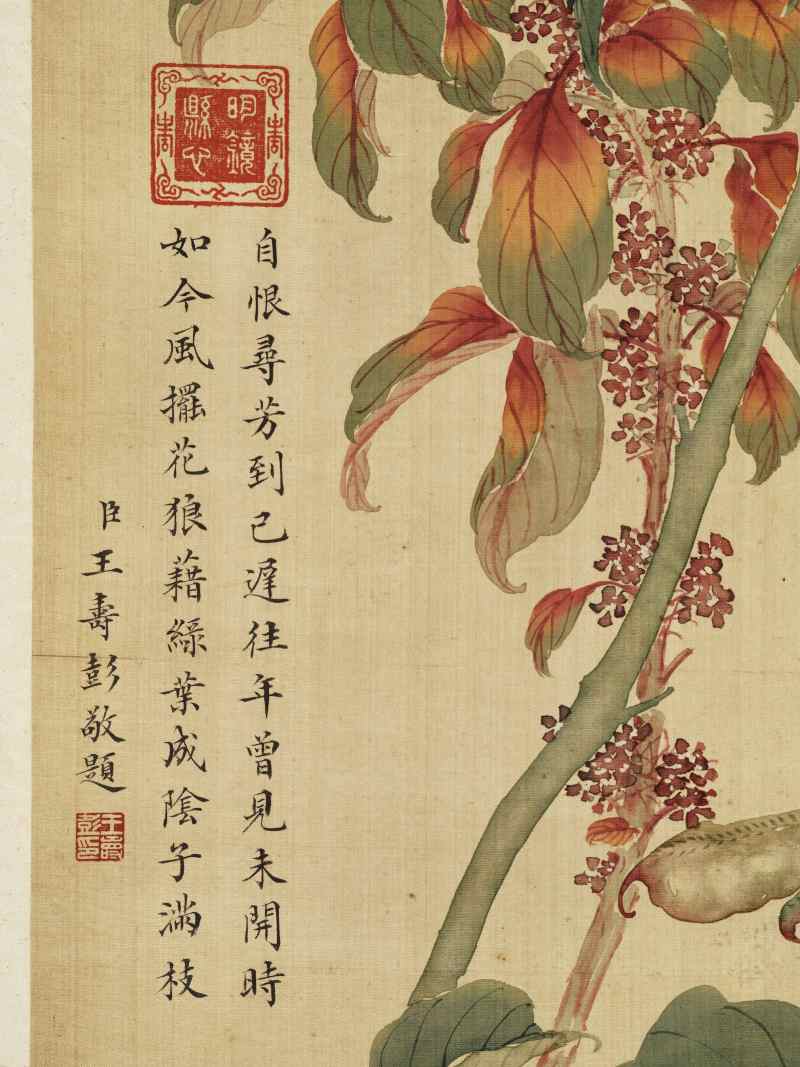 明鏡
縣心
壽
壽
自恨尋芳到已遲往年曾見未開時
如今風擺花狼藉綠葉成陰子滿枝
臣王壽彭敬題
王壽
彭印